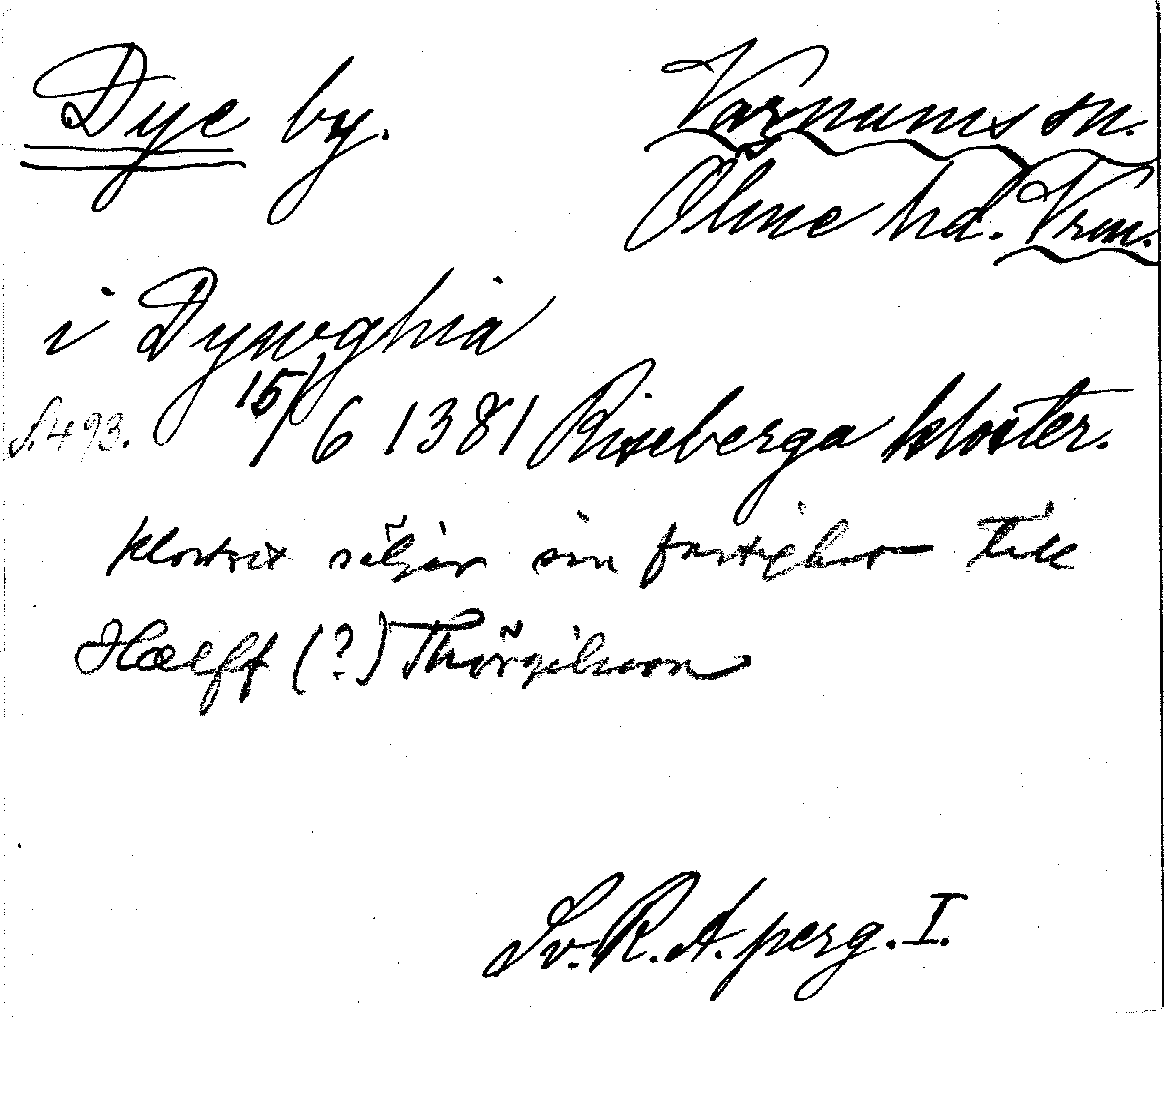 Dye by. Varnums sn.
Ölme hd. Vrm.
i Dyweghia
S. 493. 15/6 1381 Riseberga kloster.
klostret säljer sin fastighet till
Hælff (?) Thörgilsson
Sv. R. A. perg. I.